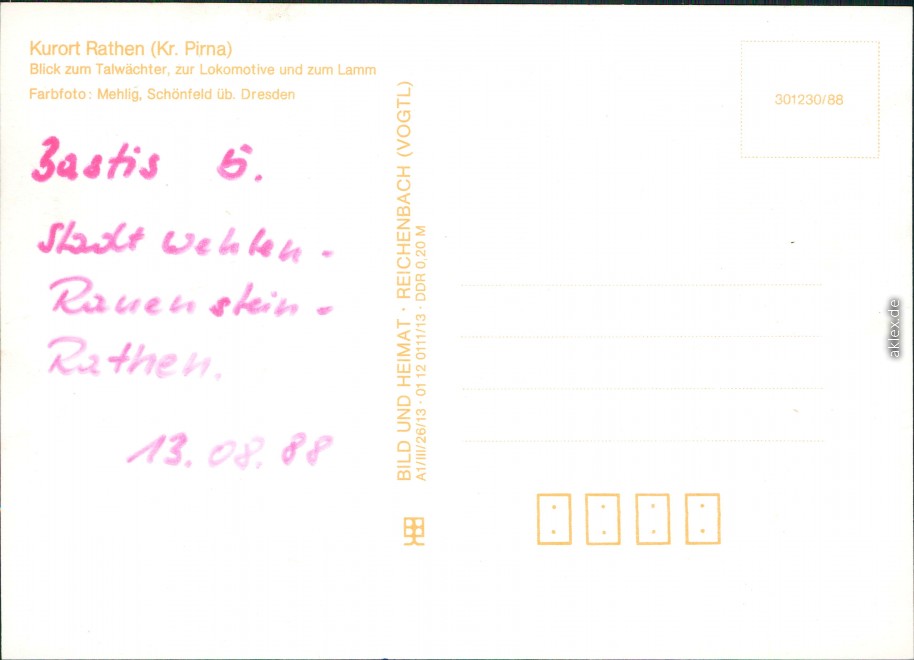 Kurort Rathen (Kr. Pirna)
Blick zum Talwächter, zur Lokomotive und zum Lamm
Farbfoto: Mehlig, Schönfeld üb. Dresden
301230/88
Bastis 6.
Stadt Wehlen -
Rauenstein -
Rathen.
13.08.88
BILD UND HEIMAT · REICHENBACH (VOGTL)
A1/III/26/13 · 01 12 0111/13 · DDR 0,20 M
aklex.de